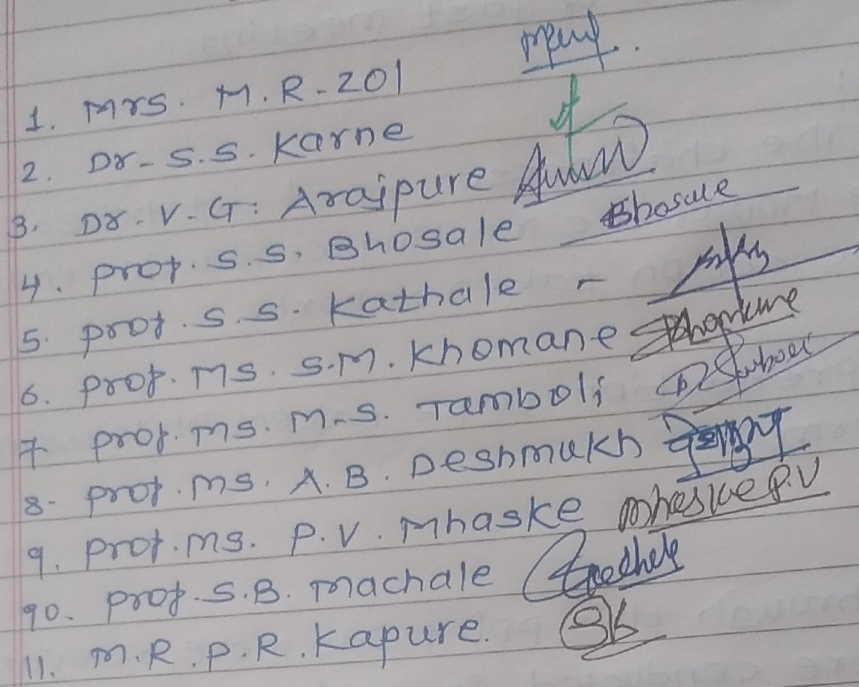 1. Mrs. M.R. Zol
2. Dr. S.S. Karne
3. Dr. V.G. Arajpure
4. prof. S.S. Bhosale Bhosale
5. prof. S.S. Kathale -
6. prof. Ms. S.M. Khomane Khomane
7. prof. ms. M.S. Tamboli
8. prof. ms. A.B. Deshmukh
9. prof. ms. P.V. Mhaske Mhaske P.V
10. prof. S.B. Machale
11. M.R. P.R. Kapure.